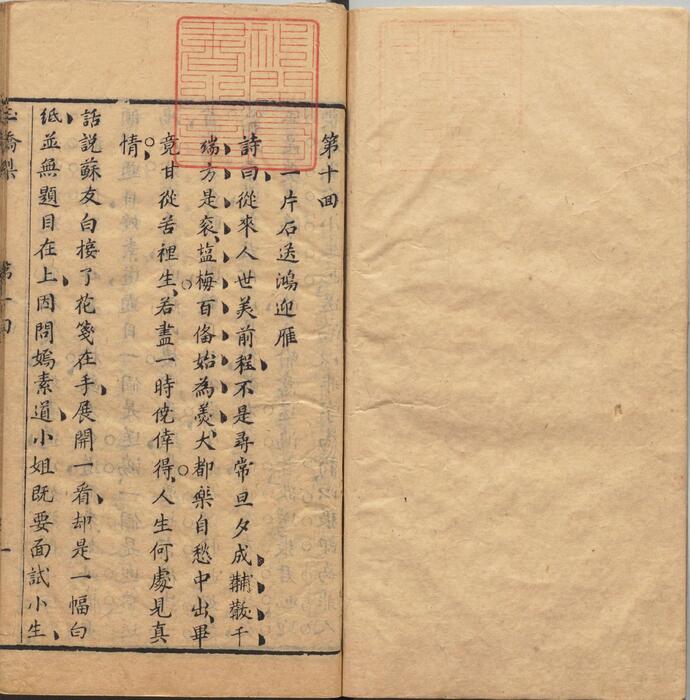 第十回
一片石送鴻迎雁
詩曰從來人世美前程不是尋常旦夕成黼黻千
端方是袞塩梅百俻始為羙大都樂自愁中出畢
竟甘從苦裡生若盡一時僥倖得人生何處見真
情
話說蘇友白接了花箋在手展開一看却是一幅白
紙並無題目在上因問嫣素道小姐既要面試小生
嬌梨